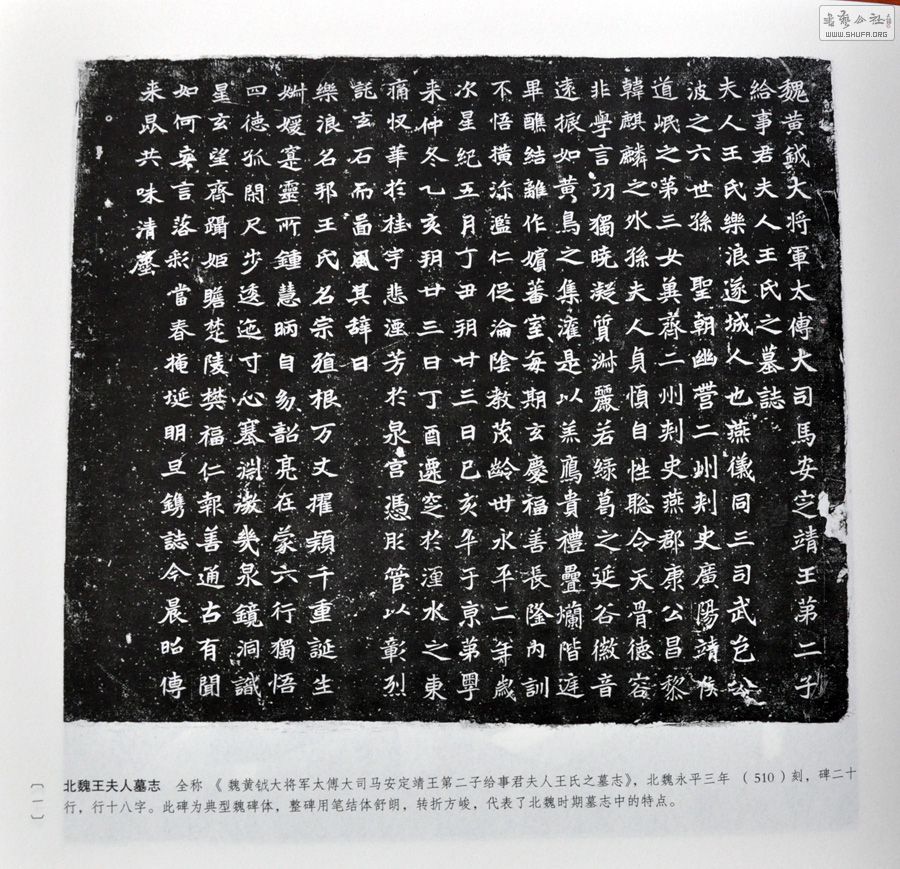 書藝公社
WWW.SHUFA.ORG
魏黃鉞大將軍太傅大司馬安定靖王第二子
給事君夫人王氏之墓誌
夫人王氏樂浪遂城人也燕儀同三司武邑公
波之六世孫　聖朝幽營二州刾史廣陽靖侯
道岷之第三女冀齊二州刾史燕郡康公昌黎
韓麒麟之外孫夫人貞慎自性聡令天骨德容
非學言功獨曉凝質淵麗若綠葛之延谷徽音
遠振如黃鳥之集灌是以羔鴈貴禮疊爛階庭
畢醮結離作嬪蕃室每期玄慶福善長隆內訓
不悟橫流濫仁促淪陰教茂齡卌永平二年歲
次星紀五月丁丑朔廿三日己亥卒于京第粵
來仲冬乙亥朔廿三日丁酉遷窆於瀍水之東
痛華於桂宇悲湮芳於泉宮憑彤管以彰烈
託玄石而啚風其辭曰
樂浪名邦王氏名宗殖根万丈擢穎千重誕生
姌媛寔靈所鍾慧昞自幼韶亮在蒙六行獨悟
四德孤閑尺步逶迤寸心塞淵澂幾泉鏡洞識
星玄望齊躡姬瞻楚陵樊福仁報善通古有聞
如何寔言落彩當春掩埏明旦鐫誌今晨昭傳
來昆共味清塵
北魏王夫人墓志　全称《魏黄钺大将军太傅大司马安定靖王第二子给事君夫人王氏之墓志》，北魏永平三年（510）刻，碑二十
行，行十八字。此碑为典型魏碑体，整碑用笔结体舒朗，转折方峻，代表了北魏时期墓志中的特点。
〔一〕